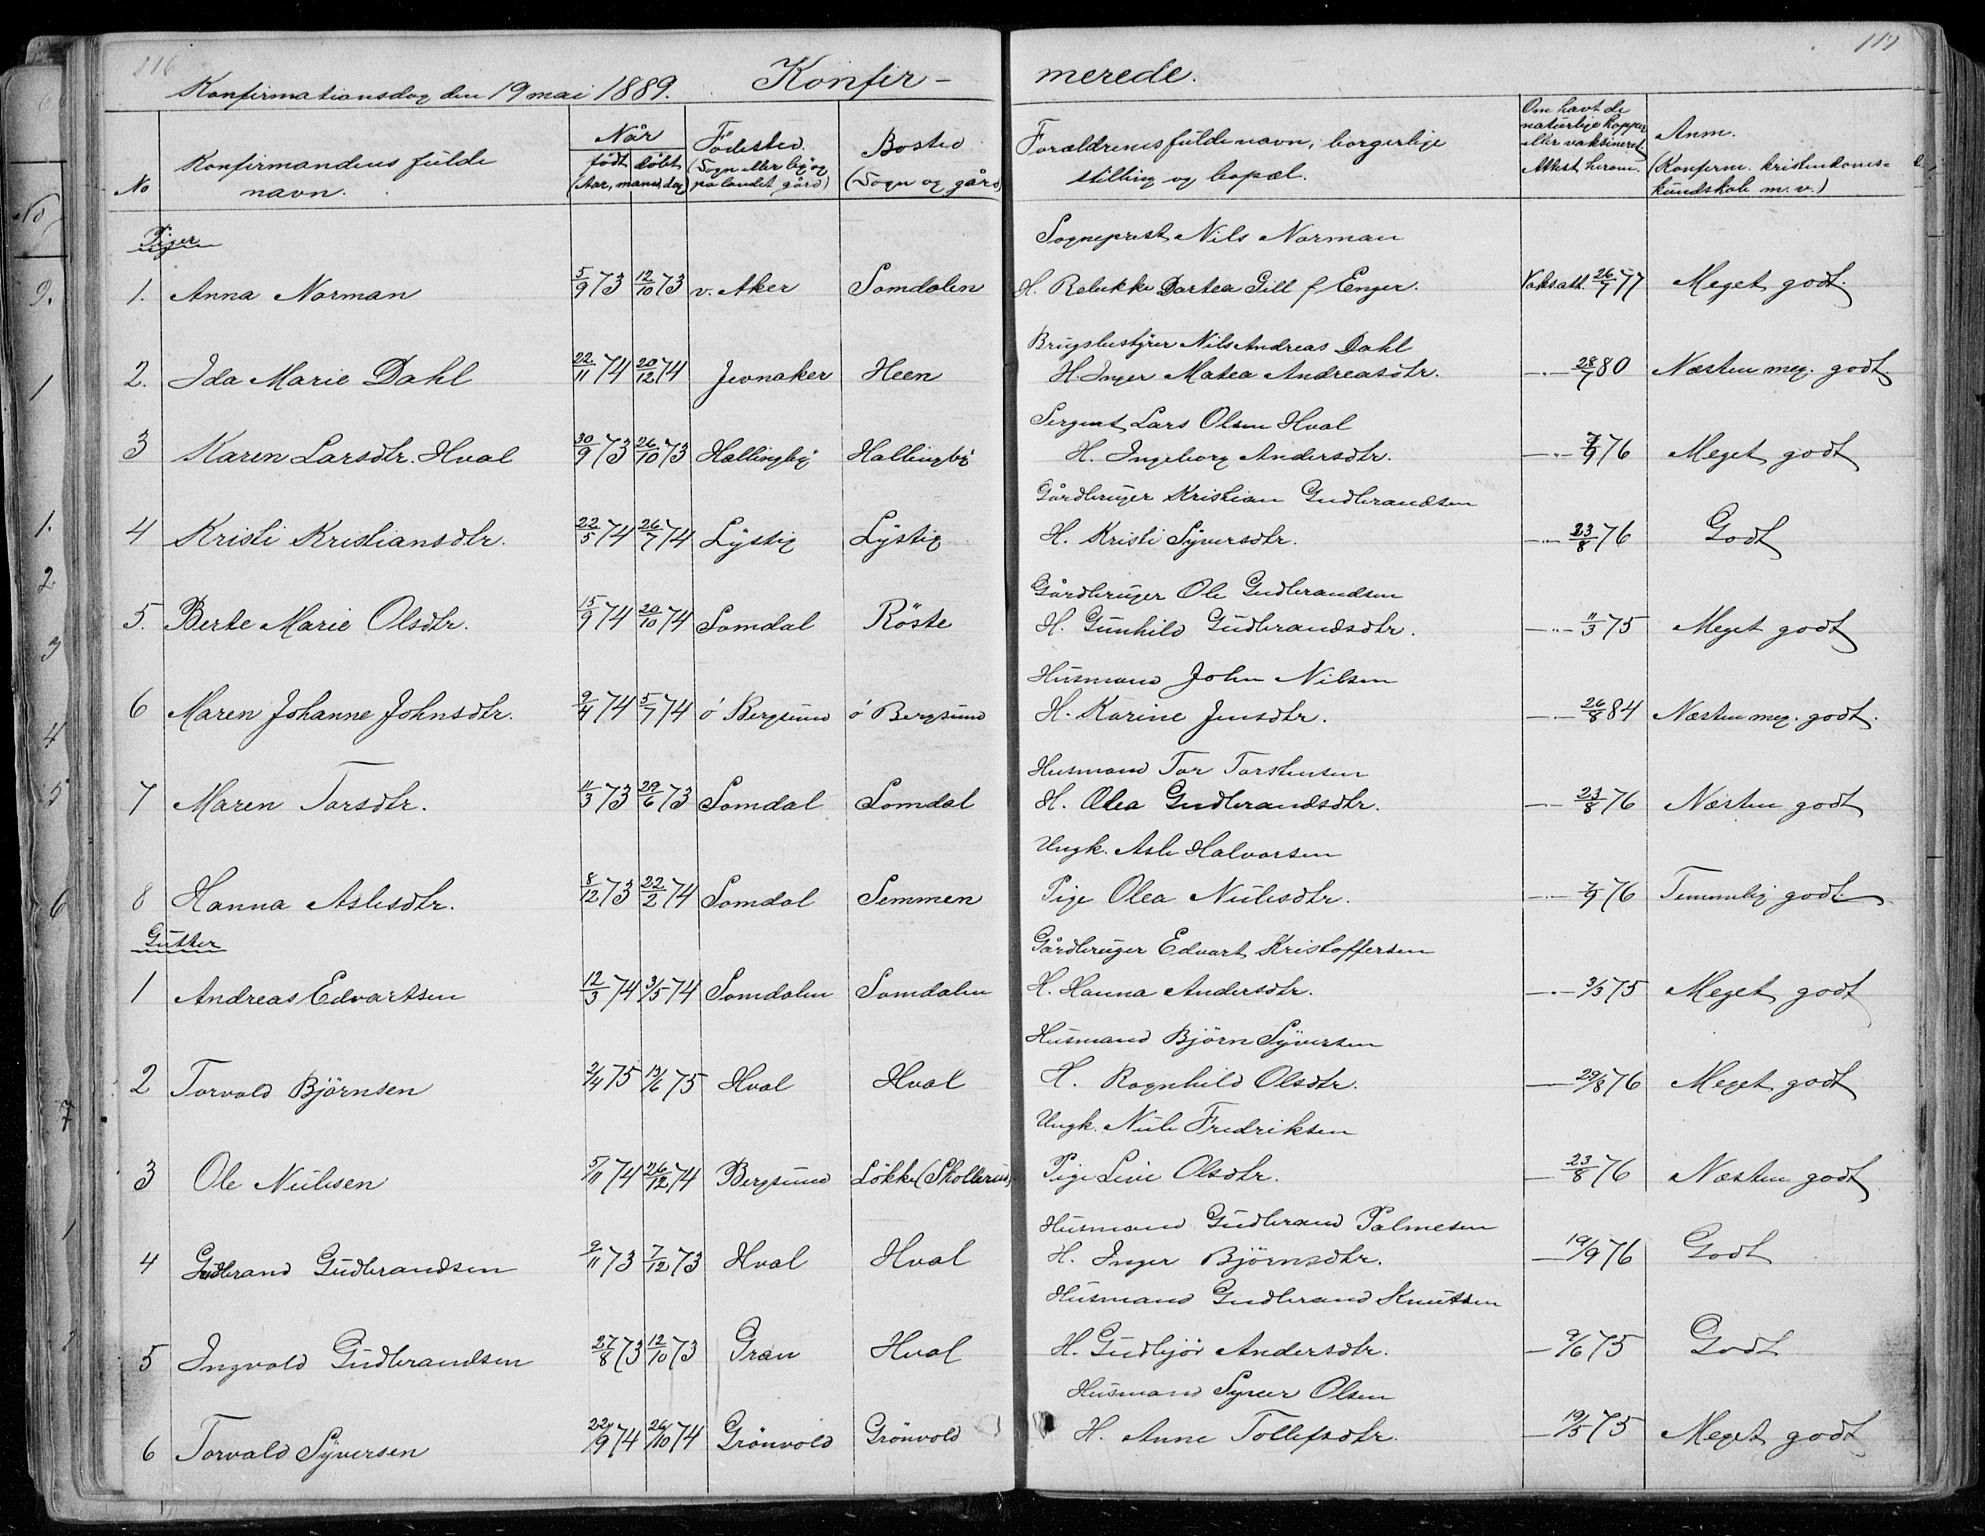 116
117
Konfir-
merede.
Konfirmationsdag den 19 mai 1889.
No
Konfirmandens fulde navn.
Når
født
döbt
(Aar, maaned, dag)
Födested. (Sogn eller by og på landet gård)
Bosted (Sogn og gård)
Forældrenes fulde navn, borgerlige stilling og bopæl.
Om havt de naturlige kopper eller vaksineret. Attest herom.
Anm. (Konfirm. kristendoms-kundskab m. v.)
Piger
Sogneprest Nils Norman
1. Anna Norman 5/9 73 12/10 73 v. Aker Somdalen H. Rebekke Dortea Gill f Enger. Vaksatt. 26/7 77 Meget godt.
Brugsbestyrer Nils Andreas Dahl
2. Ida Marie Dahl 22/11 74 20/12 74 Jevnaker Heen H. Inger Matea Andreasdtr. -"- 28/7 80 Næsten meg. godt.
Sergent Lars Olsen Hval
3 Karen Larsdtr. Hval 30/9 73 26/10 73 Hallingby Hallingby H. Ingeborg Andersdtr. -"- 7/9 76 Meget godt
Gårdbruger Kristian Gudbrandsen
4 Kristi Kristiansdtr. 22/5 74 26/7 74 Lystig Lystig H. Kristi Syversdtr. -"- 23/8 76 Godt
Gårdbruger Ole Gudbrandsen
5. Berte Marie Olsdtr. 15/9 74 20/10 74 Somdal Röste H. Gunhild Gudbrandsdtr. -"- 11/3 75 Meget godt
Husmand John Nilsen
6 Maren Johanne Johnsdtr. 9/4 74 5/7 74 ö Bergsund ö Bergsund H. Karine Jensdtr. -"- 26/8 84 Næsten meg. godt.
Husmand Tor Torstensen
7 Maren Torsdtr. 11/3 73 29/6 73 Somdal Somdal H. Olea Gudbrandsdtr. -"- 23/8 76 Næsten godt
Ungk. Asle Halvorsen
8 Hanna Aslesdtr. 8/12 73 22/2 74 Somdal Semmen Pige Olea Nielsdtr. -"- 7/9 76 Temmelig godt.
Gutter
Gårdbruger Edvart Kristoffersen
1 Andreas Edvartsen 12/3 74 3/5 74 Somdalen Somdalen H. Hanna Andersdtr. -"- 3/3 75 Meget godt
Husmand Björn Syversen
2 Torvald Björnsen 2/4 75 13/6 75 Hval Hval H. Ragnhild Olsdtr. - 29/8 76 Meget godt
Ungk. Niels Fredriksen
3 Ole Nielsen 5/11 74 26/12 74 Bergsund Lökke (Skollerud) Pige Live Olsdtr. - 23/8 76 Næsten godt
Husmand Gudbrand Palmesen
4 Gudbrand Gudbrandsen 9/11 73 7/12 73 Hval Hval H. Inger Björnsdtr. - 19/9 76 Godt
Husmand Gudbrand Knutsen
5 Ingvald Gudbrandsen 27/8 73 12/10 73 Gran Hval H. Gudbjör Andersdtr. - 9/6 75 Godt
Husmand Syver Olsen
6 Torvald Syversen 22/9 74 26/10 74 Grönvold Grönvold H. Anne Tollefsdtr. - 19/5 75 Meget godt